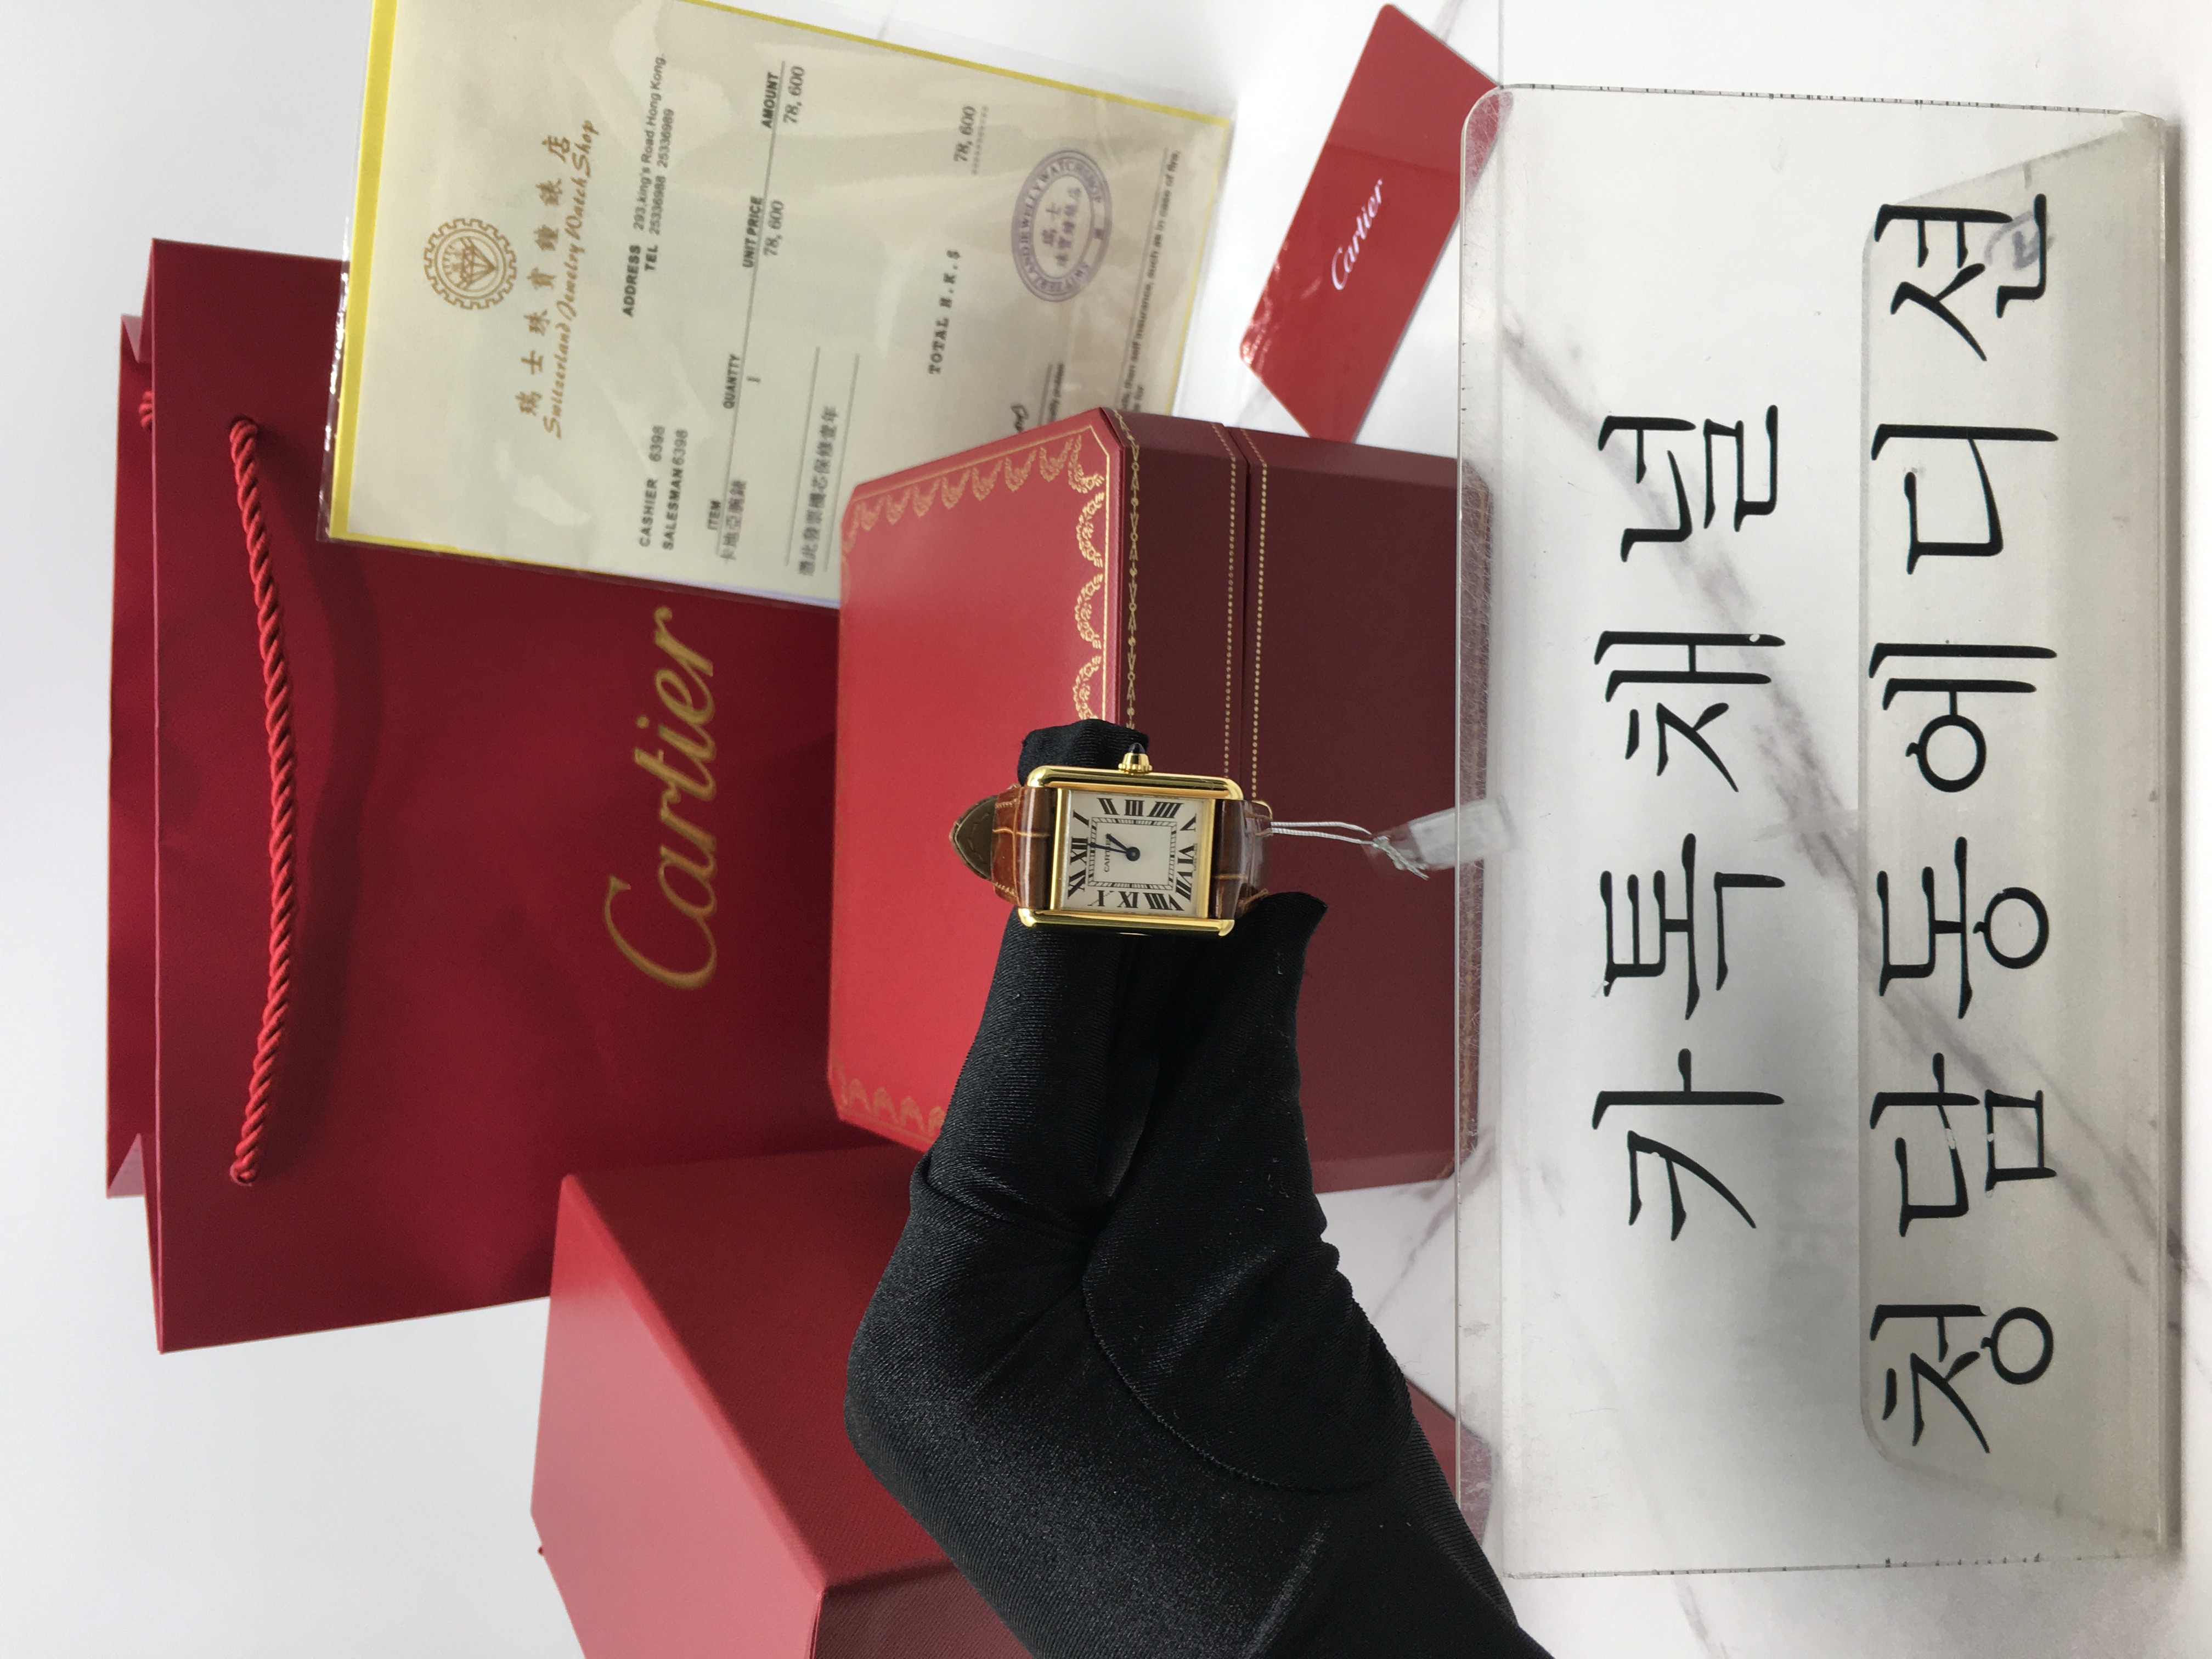 瑞士珠寶鐘錶店
Switzerland Jewelry Watch Shop
ADDRESS 293,king's Road.Hong Kong.
TEL 25336988 25336989
CASHIER 6398
SALESMAN 6398
ITEM QUANTTY UNIT PRICE AMOUNT
卡地亞腕錶 1 78,600 78,600
憑此發票機芯保修壹年
TOTAL H.K.$ 78,600
瑞士
珠寶鐘錶店
Cartier
Cartier
CARTIER
XII I II III IIII V VI VII VIII IX X XI
카톡채널
청담동에디션